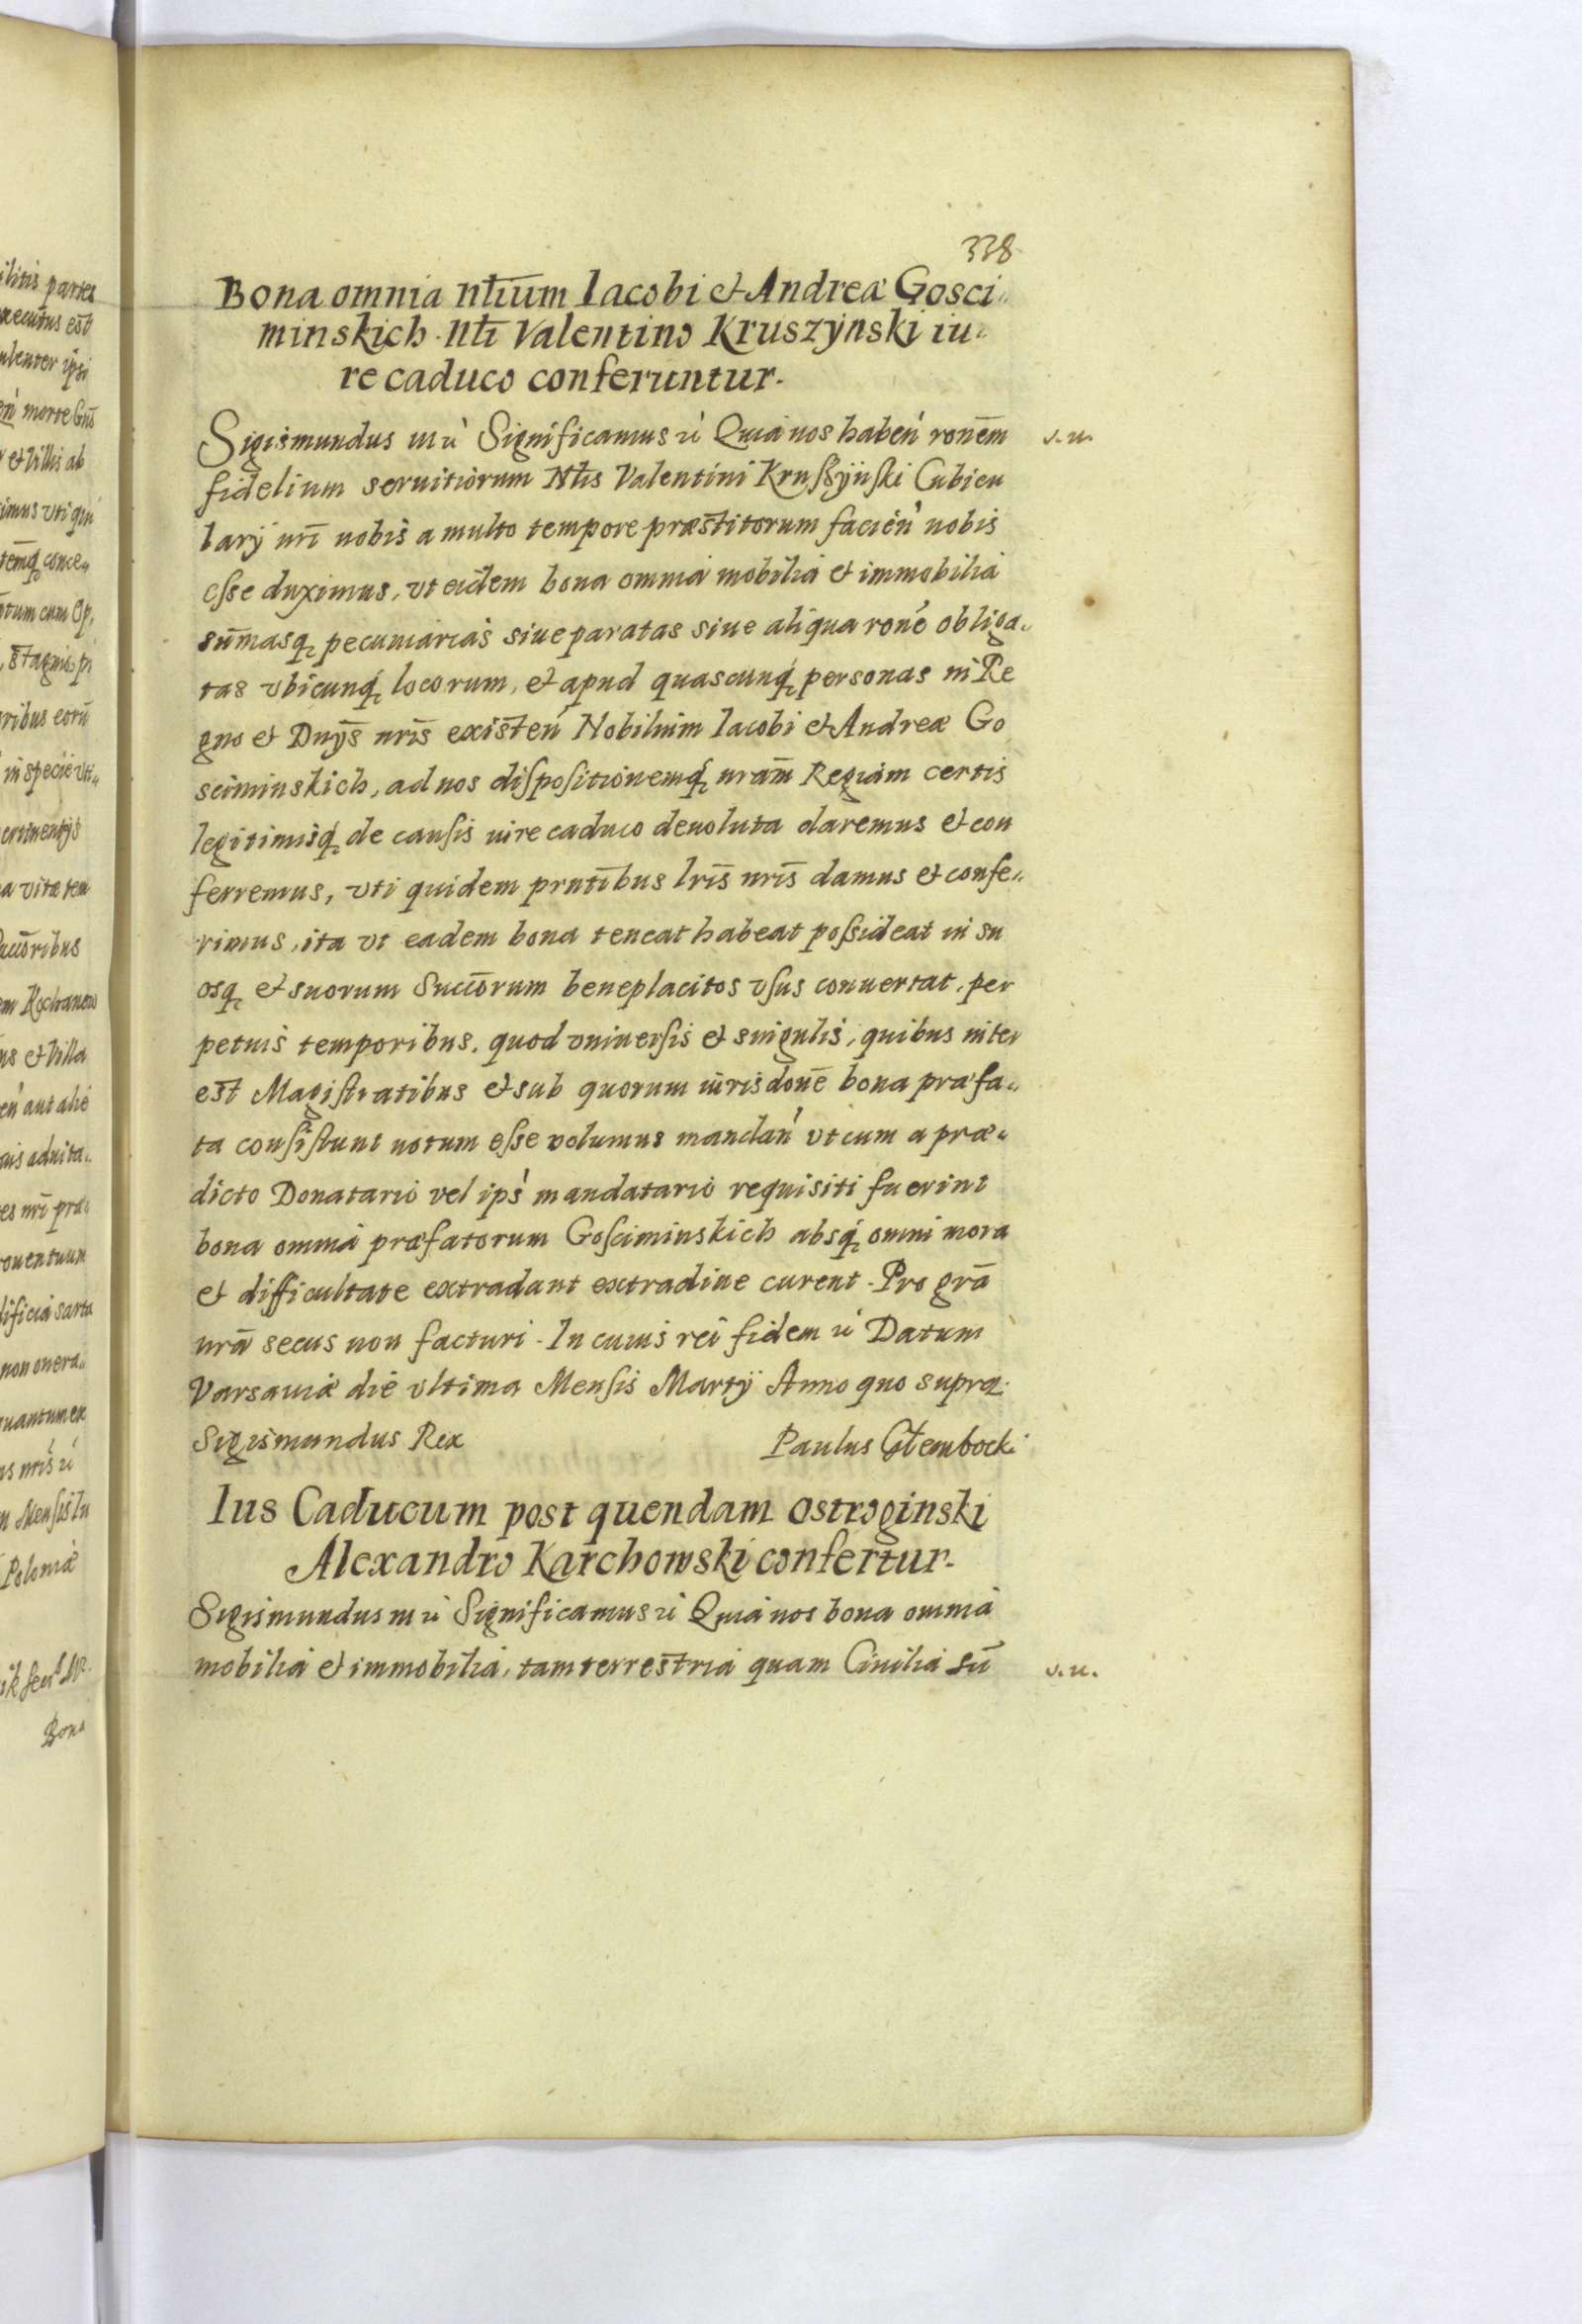 338
Bona omnia nłium Iacobi et Andreæ Gosci„
minskich nłi Valentino Kruszÿnski iu„
re caduco conferuntur.
Sigismundus III ři Significamus ři Quia nos haben ronem v. u.
fidelium seruitiorum Nłis Valentini Krußÿnski Cubicu
larÿ nri nobis a multo tempore præstitorum facien nobis
esse duximus, vt eidem bona omnia mobilia et immobilia
sum̄asq pecuniarias siue paratas siue aliqua rone obliga„
tas vbicunq locorum, et apud quascunq personas in Re
gno et Dnÿs nris existen Nobilium Iacobi et Andreæ Go
sciminskich, ad nos dispositionemq nram Regiam certis
legitimisq de causis iure caduco deuoluta daremus et con
ferremus, vti quidem prntibus lris nris damus et confe„
rimus, ita vt eadem bona teneat habeat possideat in su
osq et suorum Succorum beneplacitos vsus conuertat, per
petuis temporibus. quod vniuersis et singulis, quibus inter
est Magistratibus et sub quorum iurisdone bona præfa„
ta consistunt notum esse volumus mandan vt cum a præ„
dicto Donatario vel ips mandatario requisiti fuerint
bona omnia præfatorum Gosciminskich absq omni mora
et difficultate extradant extradiue curent. Pro gra
nra secus non facturi. In cuius rei fidem ři Datum
Varsauiæ die vltima Mensis Martÿ Anno quo supra.
Sigismundus Rex Paulus Głembocki
Ius Caducum post quendam Ostroginski
Alexandro Karchowski confertur.
Sigismundus III ři Significamus ři Quia nos bona omnia
mobilia et immobilia, tam terrestria quam Ciuilia sum̄ v. u.